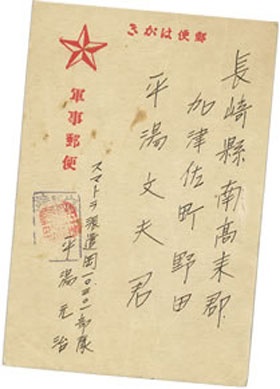 郵便はがき
軍事郵便
長崎縣南高来郡
加津佐町野田
平湯文夫君
スマトラ派遣岡一〇三〇一部隊
平湯元治